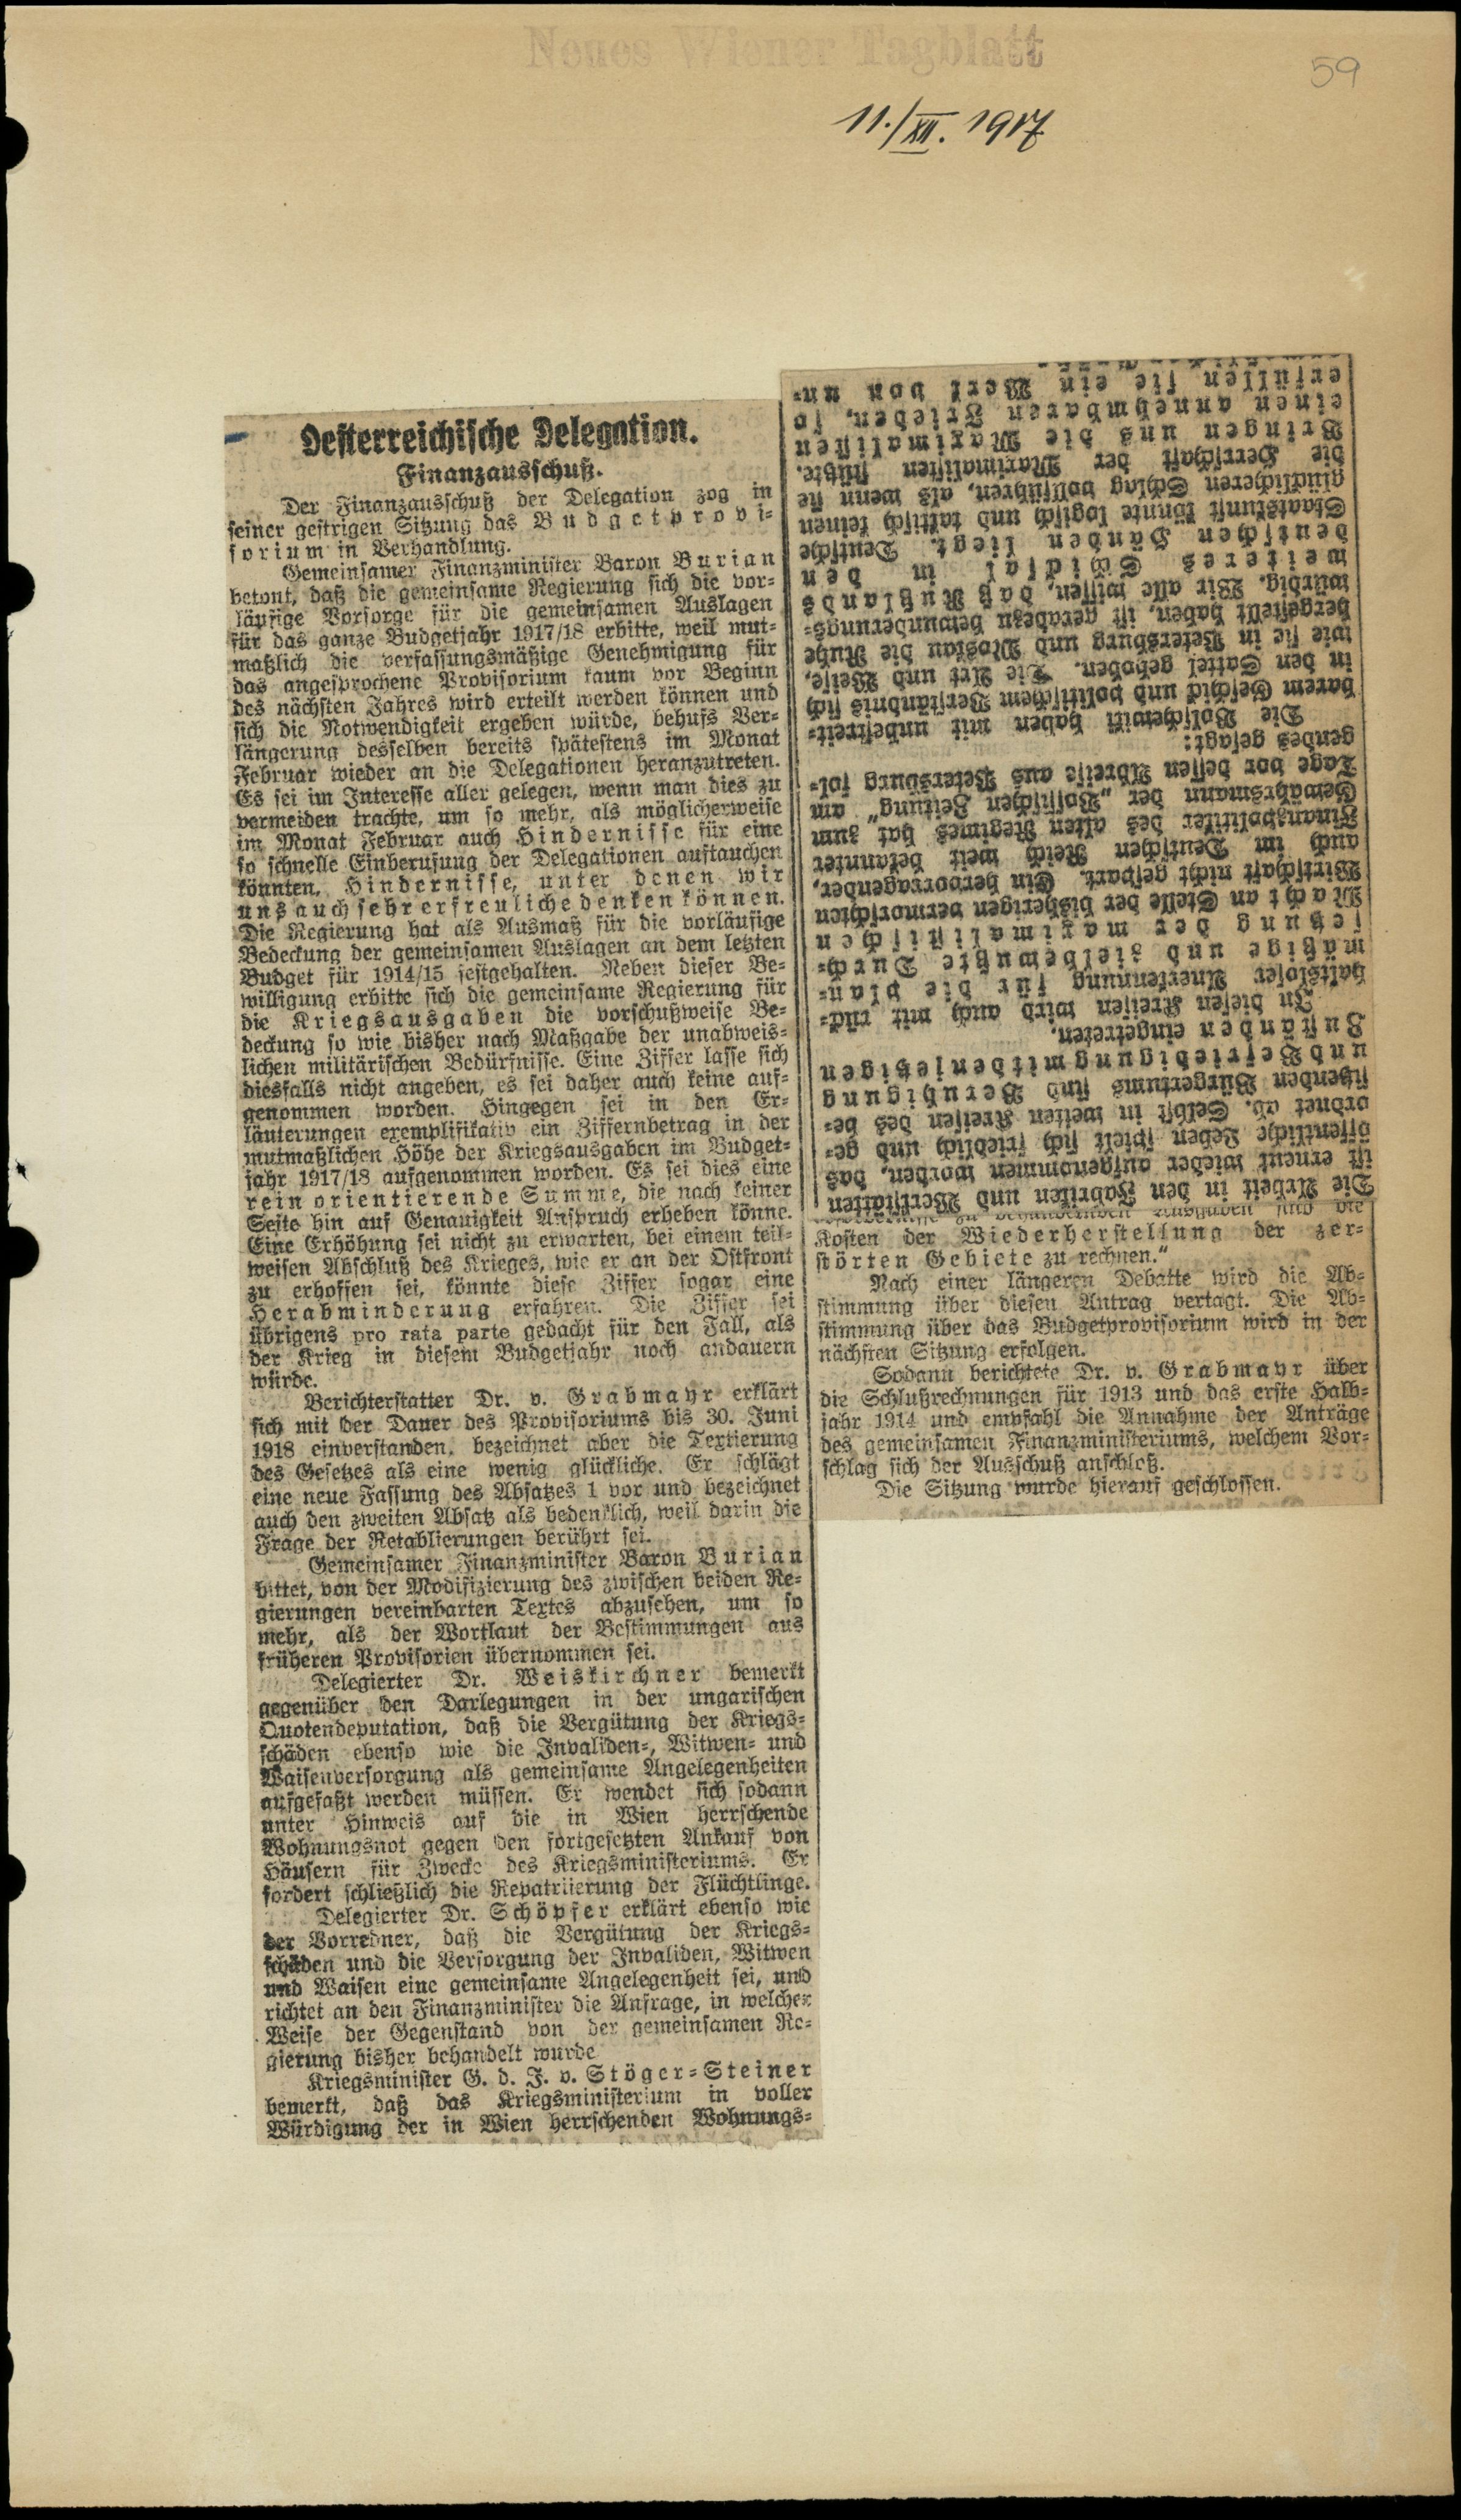 Neues Wiener Tagblatt
59
11./XII. 1917
Oesterreichische Delegation.
Finanzausschuß.
Der Finanzausschuß der Delegation zog in
seiner gestrigen Sitzung das Budgetprovi-
sorium in Verhandlung.
Gemeinsamer Finanzminister Baron Burian
betont, daß die gemeinsame Regierung sich die vor-
läufige Vorsorge für die gemeinsamen Auslagen
für das ganze Budgetjahr 1917/18 erbitte, weil mut-
maßlich die verfassungsmäßige Genehmigung für
das angesprochene Provisorium kaum vor Beginn
des nächsten Jahres wird erteilt werden können und
sich die Notwendigkeit ergeben würde, behufs Ver-
längerung desselben bereits spätestens im Monat
Februar wieder an die Delegationen heranzutreten.
Es sei im Interesse aller gelegen, wenn man dies zu
vermeiden trachte, um so mehr, als möglicherweise
im Monat Februar auch Hindernisse für eine
so schnelle Einberufung der Delegationen auftauchen
könnten, Hindernisse, unter denen wir
uns auch sehr erfreuliche denken können.
Die Regierung hat als Ausmaß für die vorläufige
Bedeckung der gemeinsamen Auslagen an dem letzten
Budget für 1914/15 festgehalten. Neben dieser Be-
willigung erbitte sich die gemeinsame Regierung für
die Kriegsausgaben die vorschußweise Be-
deckung so wie bisher nach Maßgabe der unabweis-
lichen militärischen Bedürfnisse. Eine Ziffer lasse sich
diesfalls nicht angeben, es sei daher auch keine auf-
genommen worden. Hingegen sei in den Er-
läuterungen exemplifikativ ein Ziffernbetrag in der
mutmaßlichen Höhe der Kriegsausgaben im Budget-
jahr 1917/18 aufgenommen worden. Es sei dies eine
rein orientierende Summe, die nach keiner
Seite hin auf Genauigkeit Anspruch erheben könne.
Eine Erhöhung sei nicht zu erwarten, bei einem teil-
weisen Abschluß des Krieges, wie er an der Ostfront
zu erhoffen sei, könnte diese Ziffer sogar eine
Herabminderung erfahren. Die Ziffer sei
übrigens pro rata parte gedacht für den Fall, als
der Krieg in diesem Budgetjahr noch andauern
würde.
Berichterstatter Dr. v. Grabmayr erklärt
sich mit der Dauer des Provisoriums bis 30. Juni
1918 einverstanden, bezeichnet aber die Textierung
des Gesetzes als eine wenig glückliche. Er schlägt
eine neue Fassung des Absatzes 1 vor und bezeichnet
auch den zweiten Absatz als bedenklich, weil darin die
Frage der Retablierungen berührt sei.
Gemeinsamer Finanzminister Baron Burian
bittet, von der Modifizierung des zwischen beiden Re-
gierungen vereinbarten Textes abzusehen, um so
mehr, als der Wortlaut der Bestimmungen aus
früheren Provisorien übernommen sei.
Delegierter Dr. Weiskirchner bemerkt
gegenüber den Darlegungen in der ungarischen
Quotendeputation, daß die Vergütung der Kriegs-
schäden ebenso wie die Invaliden-, Witwen- und
Waisenversorgung als gemeinsame Angelegenheiten
aufgefaßt werden müssen. Er wendet sich sodann
unter Hinweis auf die in Wien herrschende
Wohnungsnot gegen den fortgesetzten Ankauf von
Häusern für Zwecke des Kriegsministeriums. Er
fordert schließlich die Repatriierung der Flüchtlinge.
Delegierter Dr. Schöpfer erklärt ebenso wie
der Vorredner, daß die Vergütung der Kriegs-
schäden und die Versorgung der Invaliden, Witwen
und Waisen eine gemeinsame Angelegenheit sei, und
richtet an den Finanzminister die Anfrage, in welcher
Weise der Gegenstand von der gemeinsamen Re-
gierung bisher behandelt wurde
Kriegsminister G. d. J. v. Stöger-Steiner
bemerkt, daß das Kriegsministerium in voller
Würdigung der in Wien herrschenden Wohnungs-
Die Arbeit in den Fabriken und Werkstätten
ist erneut wieder aufgenommen worden, das
öffentliche Leben spielt sich friedlich und ge-
ordnet ab. Selbst in weiten Kreisen des be-
sitzenden Bürgertums sind Beruhigung
und Befriedigung mit den jetzigen
Zuständen eingetreten.
In diesen Kreisen wird auch mit rück-
haltsloser Anerkennung für die plan-
mäßige und zielbewußte Durch-
setzung der maximalistischen
Macht an Stelle der bisherigen vermorschten
Wirtschaft nicht gespart. Ein hervorragender,
auch im Deutschen Reich weit bekannter
Finanzpolitiker des alten Regimes hat zum
Gewährsmann der „Vossischen Zeitung" am
Tage vor dessen Abreise aus Petersburg fol-
gendes gesagt:
Die Bolschewiki haben mit unbestreit-
barem Geschick und politischem Verständnis sich
in den Sattel gehoben. Die Art und Weise,
wie sie in Petersburg und Moskau die Ruhe
hergestellt haben, ist geradezu bewunderungs-
würdig. Wir alle wissen, daß Rußlands
weiteres Schicksal in den
deutschen Händen liegt. Deutsche
Staatskunst könnte logisch und taktisch keinen
glücklicheren Schlag vollführen, als wenn sie
die Herrschaft der Maximalisten stützte.
Bringen uns die Maximalisten
einen annehmbaren Frieden, so
erfüllen sie ein Werk von un-
zu behandelnden Ausgaben sind die
Kosten der Wiederherstellung der zer-
störten Gebiete zu rechnen."
Nach einer längeren Debatte wird die Ab-
stimmung über diesen Antrag vertagt. Die Ab-
stimmung über das Budgetprovisorium wird in der
nächsten Sitzung erfolgen.
Sodann berichtete Dr. v. Grabmayr über
die Schlußrechnungen für 1913 und das erste Halb-
jahr 1914 und empfahl die Annahme der Anträge
des gemeinsamen Finanzministeriums, welchem Vor-
schlag sich der Ausschuß anschloß.
Die Sitzung wurde hierauf geschlossen.